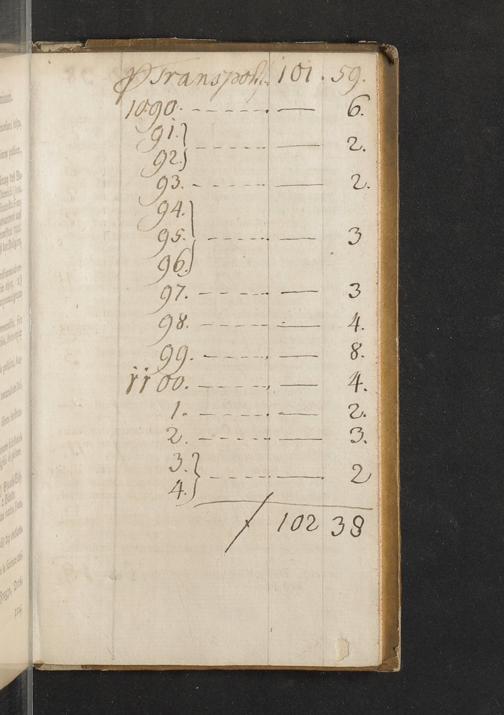 P Transport. 101. 59.
1090. — 6.
91.}
92.} — 2.
93. — 2.
94.
95. — 3
96.
97. — 3
98. — 4.
99. — 8.
1100. — 4.
1. — 2.
2. — 3.
3.}
4.} — 2
102 38